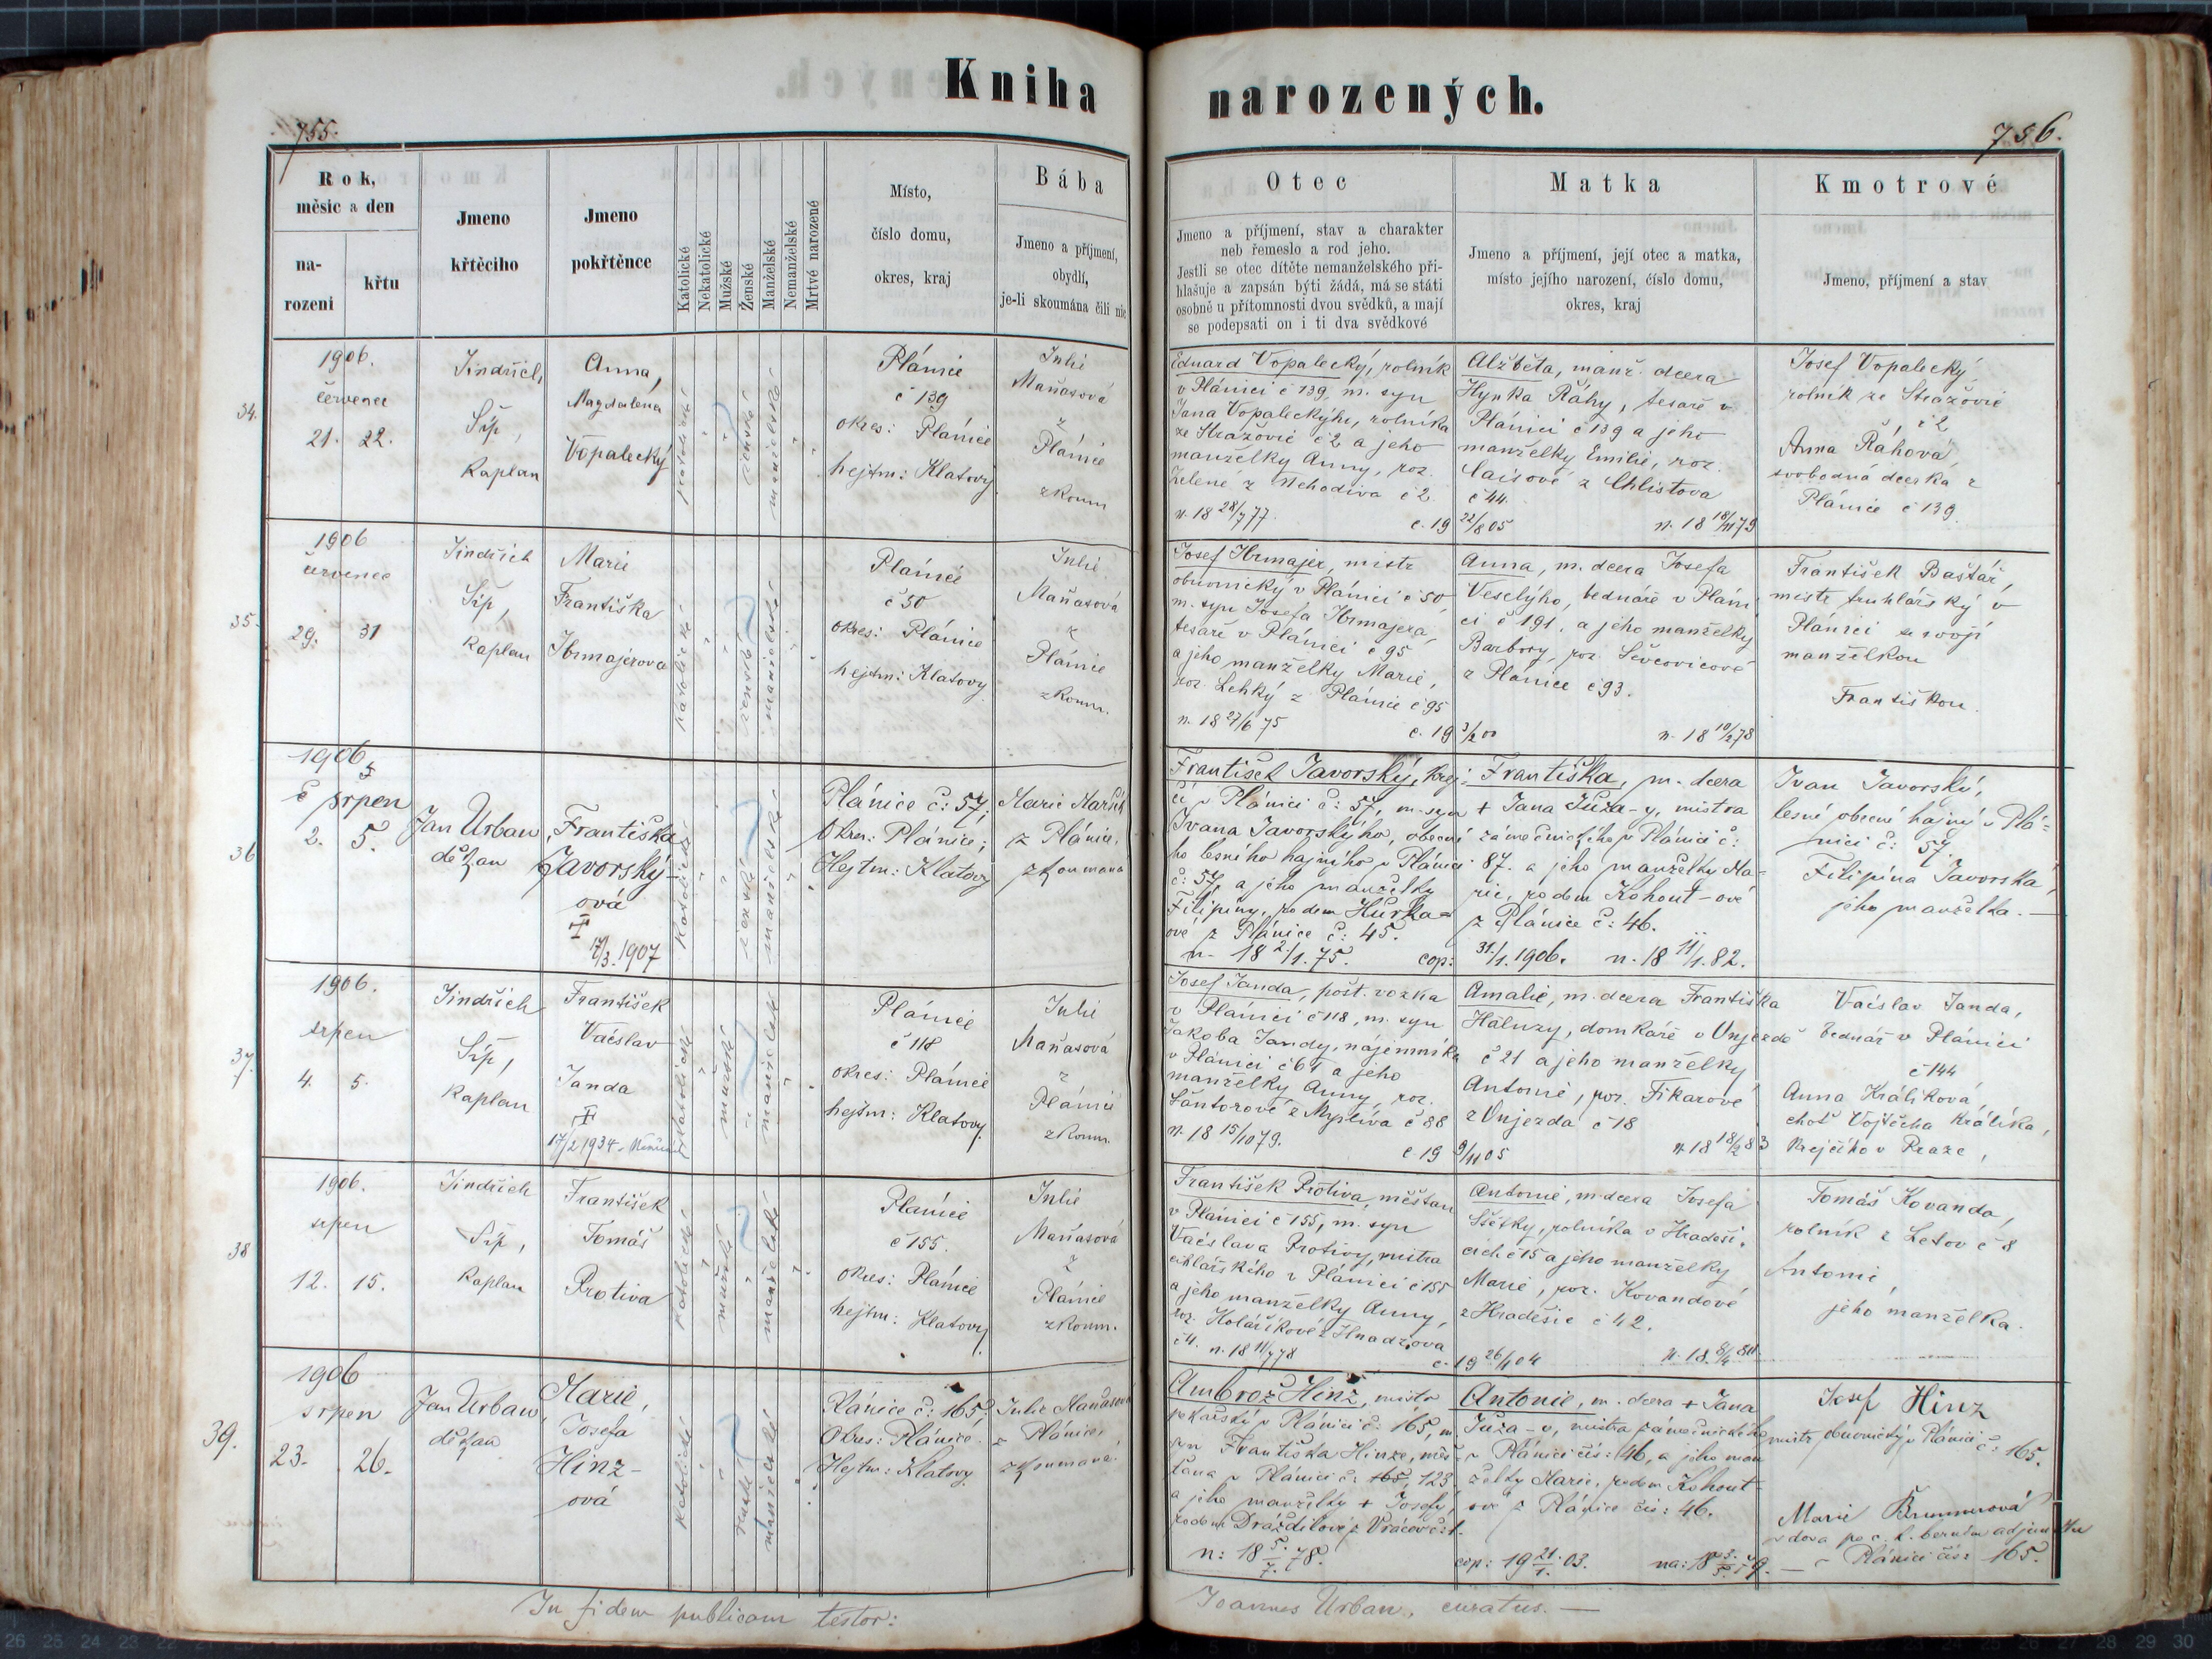 Kniha
narozených.
755.
756.
Rok,
měsíc a den
na-
rozeni
křtu
Jmeno
křtěcího
Jmeno
pokřtěnce
Katolické
Nekatolické
Mužské
Ženské
Manželské
Nemanželské
Mrtvé narozené
Místo,
číslo domu,
okres, kraj
Bába
Jmeno a příjmení,
obydlí,
je-li skoumána čili nic
Otec
Jmeno a příjmení, stav a charakter
neb řemeslo a rod jeho.
Jestli se otec dítěte nemanželského při-
hlašuje a zapsán býti žádá, má se státi
osobně u přítomnosti dvou svědků, a mají
se podepsati on i ti dva svědkové
Matka
Jmeno a příjmení, její otec a matka,
místo jejího narození, číslo domu,
okres, kraj
Kmotrové
Jmeno, příjmení a stav
34.
1906.
červenec
21. 22.
Jindřich
Síp,
Kaplan
Anna,
Magdalena
Vopalecký
katolické
ženské
manželské
Plánice
č 139
okres: Plánice
hejtm: Klatovy
Julie
Maňasová
z
Plánice
zkoum
Eduard Vopalecký, rolník
v Plánici č 139, m. syn
Jana Vopaleckýho, rolníka
ze Stražovic č 2 a jeho
manželky Anny, roz.
Zelené z Nehodiva č 2.
n. 18 28/7 77.
c. 19 22/8 05
Alžběta, manž. dcera
Hynka Ráhy, tesaře v
Plánici č 139 a jeho
manželky Emilie, roz.
z Chlistova
č 44.
n. 18 18/11 79
Josef Vopalecký
rolník ze Stražovic
č 2
Anna Ráhová,
svobodná dcerka z
Plánice č 139
35.
1906
červenec
29. 31
Jindřich
Síp,
kaplan
Marie
Františka
katolické
ženské
manželské
Plánice
č 50
okres: Plánice
hejtm: Klatovy
Julie
Maňasová
z
Plánice
zkoum.
Josef mistr
obuvnický v Plánici č 50
m. syn Josefa
tesaře v Plánici č 95
a jeho manželky Marie,
roz. Lehký z Plánice č 95
n. 18 27/6 75
c. 19 3/2 00
Anna, m. dcera Josefa
Veselýho, bednáře v Pláni
ci č 191, a jeho manželky
Barbory, roz. Ševcovicové
z Plánice č 93.
n. 18 10/2 78
František Baštář,
mistr truhlářský v
Plánici se svojí
manželkou
Františkou.
36
1906
srpen
2. 5.
Jan Urban
děkan
Františka
Javorský-
ová
17/3. 1907
katolické
ženské
manželské
Plánice č: 57,
Okres: Plánice;
Hejtm: Klatovy
Marie
z Plánice,
zkoumaná
František Javorský, krej-
čí v Plánici č: 57, m. syn
Ivana Javorskýho, obecní
ho lesního hajného v Plánici
č: 57, a jeho manželky
Filipiny, rodem Hůrka-
ové z Plánice č: 45.
n. 18 2/1. 75.
cop: 31/1. 1906.
Františka, m. dcera
+ Jana Tůza-y, mistra
zámečnického v Plánici č:
87. a jeho manželky Ma-
rie, rodem Kohout-ové
z Plánice č: 46.
n. 18 11/1. 82.
Ivan Javorský,
lesní obecní hajný v Plá-
nici č: 57.
Filipína Javorská,
jeho manželka.
37.
1906.
srpen
4. 5.
Jindřich
Síp,
kaplan
František
Václav
Janda
17/2 1934
katolické
mužské
manželské
Plánice
č 118
okres: Plánice
hejtm: Klatovy.
Julie
Maňasová
z
Plánice
zkoum.
Josef Janda, pošt. vozka
v Plánici č 118, m. syn
Jakoba Jandy, nájemníka
v Plánici č 61 a jeho
manželky Anny, roz.
Šántorové z Myslíva č 88
n. 18 15/10 79.
c. 19 9/11 05
Amalie, m. dcera Františka
Haluzy, domkáře v Vnjezdě
č 21 a jeho manželky
Antonie, roz. Fikarové
z Vnjezda č 18
n. 18 18/2 83
Václav Janda,
bednář v Plánici
č 144
Anna Králiková,
choť Vojtěcha Králíka,
krejčího v Praze,
38
1906.
srpen
12. 15.
Jindřich
Síp,
kaplan
František
Tomáš
Protiva
katolické
mužské
manželské
Plánice
č 155.
okres: Plánice
hejtm: Klatovy
Julie
Maňasová
z
Plánice
zkoum.
František Protiva, měšťan
v Plánici č 155, m. syn
Václava Protivy, mistra
cihlářského v Plánici č 155
a jeho manželky Anny,
roz. Kolaříkové z Hnadzova
č 4. n. 18 11/7 78
c. 19 26/1 04
Antonie, m. dcera Josefa
Štětky, rolníka v Hradeši-
cích č 15 a jeho manželky
Marie, roz. Kovandové
z Hradešic č 42.
n. 18 8/4 80.
Tomáš Kovanda,
rolník z Letov č 8
Antonie,
jeho manželka.
39.
1906
srpen
23. 26.
Jan Urban,
děkan
Marie,
Josefa
Hinz-
ová
katolické
ženské
manželské
Plánice č: 165.
Okres: Plánice.
Hejtm: Klatovy.
Julie Maňasová
z Plánice,
zkoumaná.
Ambrož Hinz, mistr
pekařský v Plánici č: 165, m
syn Františka Hinze, měš-
ťana v Plánici č: 165, 123
a jeho manželky + Josefy,
rodem Dráždilové z Vracova č: 1.
n: 18 5./7. 78.
cop: 19 21./1. 03.
Antonie, m. dcera + Jana
Tůza-y, mistra zámečnického
v Plánici čís: 46, a jeho man
želky Marie, rodem Kohout-
ové z Plánice čís: 46.
na: 18 3./5. 79.
Josef Hinz
mistr obuvnický v Plánici č: 165.
Marie Brunnerová
vdova po c. k. berním adjunktu
v Plánici čís: 165.
In fidem publicam testor:
Joannes Urban, curatus.
26 25 24 23 22
26 27 28 29 30